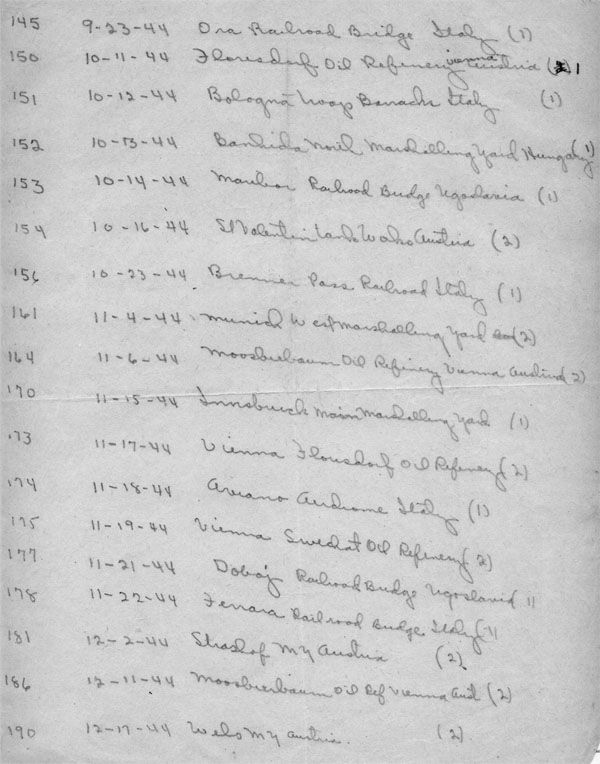 145 9-23-44 Ora Railroad Bridge Italy (1)
150 10-11-44 Floresdorf Oil Refinery Vienna Austria 1
151 10-12-44 Bologna Troop Barracks Italy (1)
152 10-13-44 Banhida North Marshalling Yard Hungary (1)
153 10-14-44 Railroad Bridge Ugoslavia (1)
154 10-16-44 St Valentin Tank Austria (2)
156 10-23-44 Brenner Pass Railroad Italy (1)
161 11-4-44 Munich West Marshalling Yard (2)
164 11-6-44 Moosbierbaum Oil Refinery Vienna Austria (2)
170 11-15-44 Innsbruck Main Marshalling Yard (1)
173 11-17-44 Vienna Flousdorf Oil Refinery (2)
174 11-18-44 Aviano Airdrome Italy (1)
175 11-19-44 Vienna Swechat Oil Refinery (2)
177 11-21-44 Doboj Railroad Bridge Ugoslavia 1)
178 11-22-44 Ferrara Railroad Bridge Italy (1)
181 12-2-44 Strashof MY Austria (2)
186 12-11-44 Moosbierbaum Oil Ref Vienna Aust (2)
190 12-17-44 Wels MY Austria. (2)